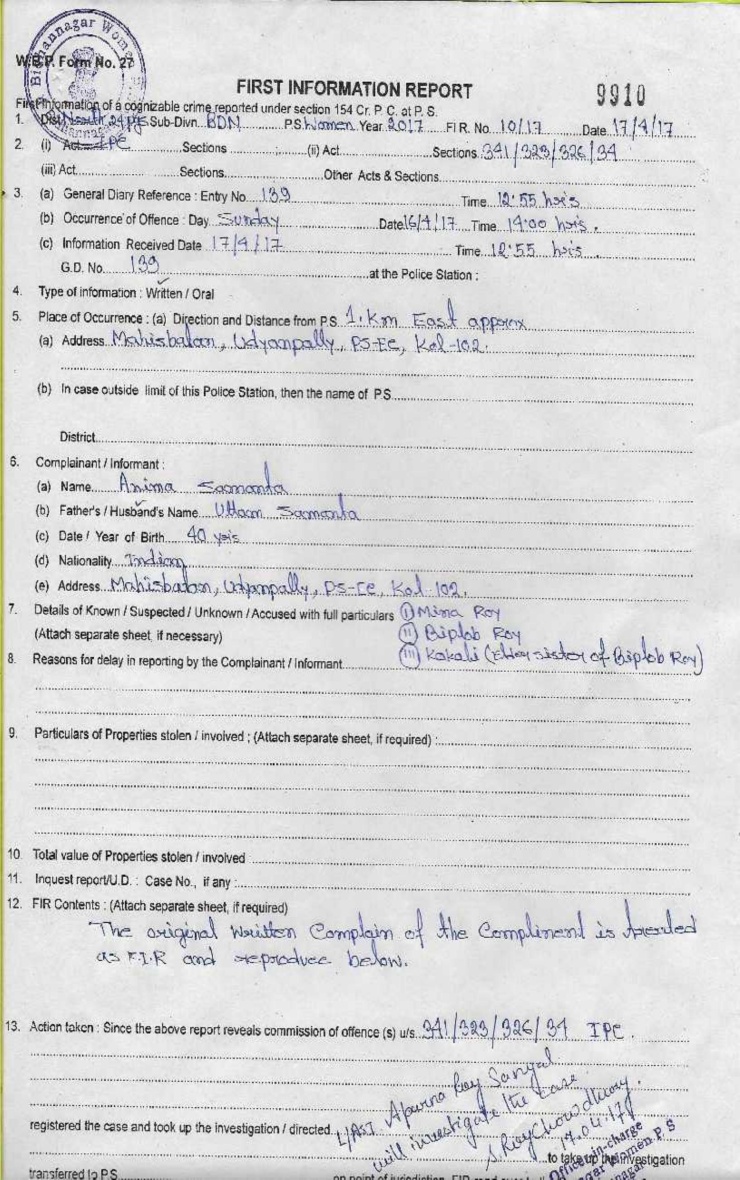 Bidhannagar Women
W.B.P. Form No. 27
FIRST INFORMATION REPORT
9910
First Information of a cognizable crime reported under section 154 Cr. P. C. at P. S.
1. Dist. North 24 PGS Sub-Divn. BDN P.S Women Year 2017 F I R. No. 10/17 Date 17/4/17
2. (i) Act IPC Sections (ii) Act Sections 341/323/326/34
(iii) Act Sections Other Acts & Sections
3. (a) General Diary Reference : Entry No. 139 Time 12·55 hrs
(b) Occurrence of Offence : Day Sunday Date 16/4/17 Time 14:00 hrs.
(c) Information Received Date 17/4/17 Time 12·55 hrs.
G.D. No. 139 at the Police Station :
4. Type of information : Written / Oral
5. Place of Occurrence : (a) Direction and Distance from P.S. 1. Km East approx
(a) Address Mahisbatan, Udyanpally, PS-EC, Kol-102.
(b) In case outside limit of this Police Station, then the name of P.S.
District
6. Complainant / Informant :
(a) Name Anima Samanta
(b) Father's / Husband's Name Uttam Samanta
(c) Date / Year of Birth 40 yrs
(d) Nationality Indian
(e) Address Mahisbatan, Udyanpally, PS-EC, Kol-102.
7. Details of Known / Suspected / Unknown / Accused with full particulars (i) Mina Roy
(Attach separate sheet, if necessary) (ii) Biplob Roy
8. Reasons for delay in reporting by the Complainant / Informant (iii) Kakali (Elder sister of Biplob Roy)
9. Particulars of Properties stolen / involved ; (Attach separate sheet, if required) :
10. Total value of Properties stolen / involved
11. Inquest report/U.D. : Case No., if any :
12. FIR Contents : (Attach separate sheet, if required)
The original Written Complain of the Compliment is treated
as F.I.R and reproduce below.
13. Action taken : Since the above report reveals commission of offence (s) u/s. 341/323/326/34 IPC.
registered the case and took up the investigation / directed L/ASI Aparna Roy Sanyal
will investigate the case.
S. Roy Chowdhury.
17.04.17
Officer-in-charge
to take up the investigation
transferred to P.S.